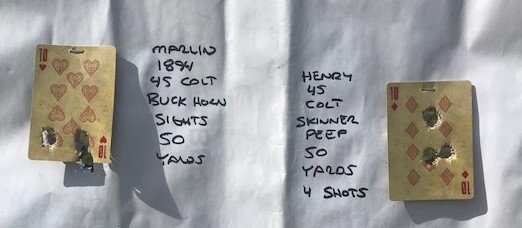 10
MARLIN
1894
45 COLT
BUCK HORN
SIGHTS
50
YARDS
10
10
HENRY
45
COLT
SKINNER
PEEP
50
YARDS
4 SHOTS
10